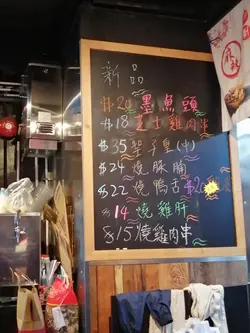 新品
$20 墨魚頭
$18 芝士雞肉串
$35 架子骨(中)
$24 燒豚腩
$22 燒鴨舌
$14 燒雞肝
$15 燒雞肉串